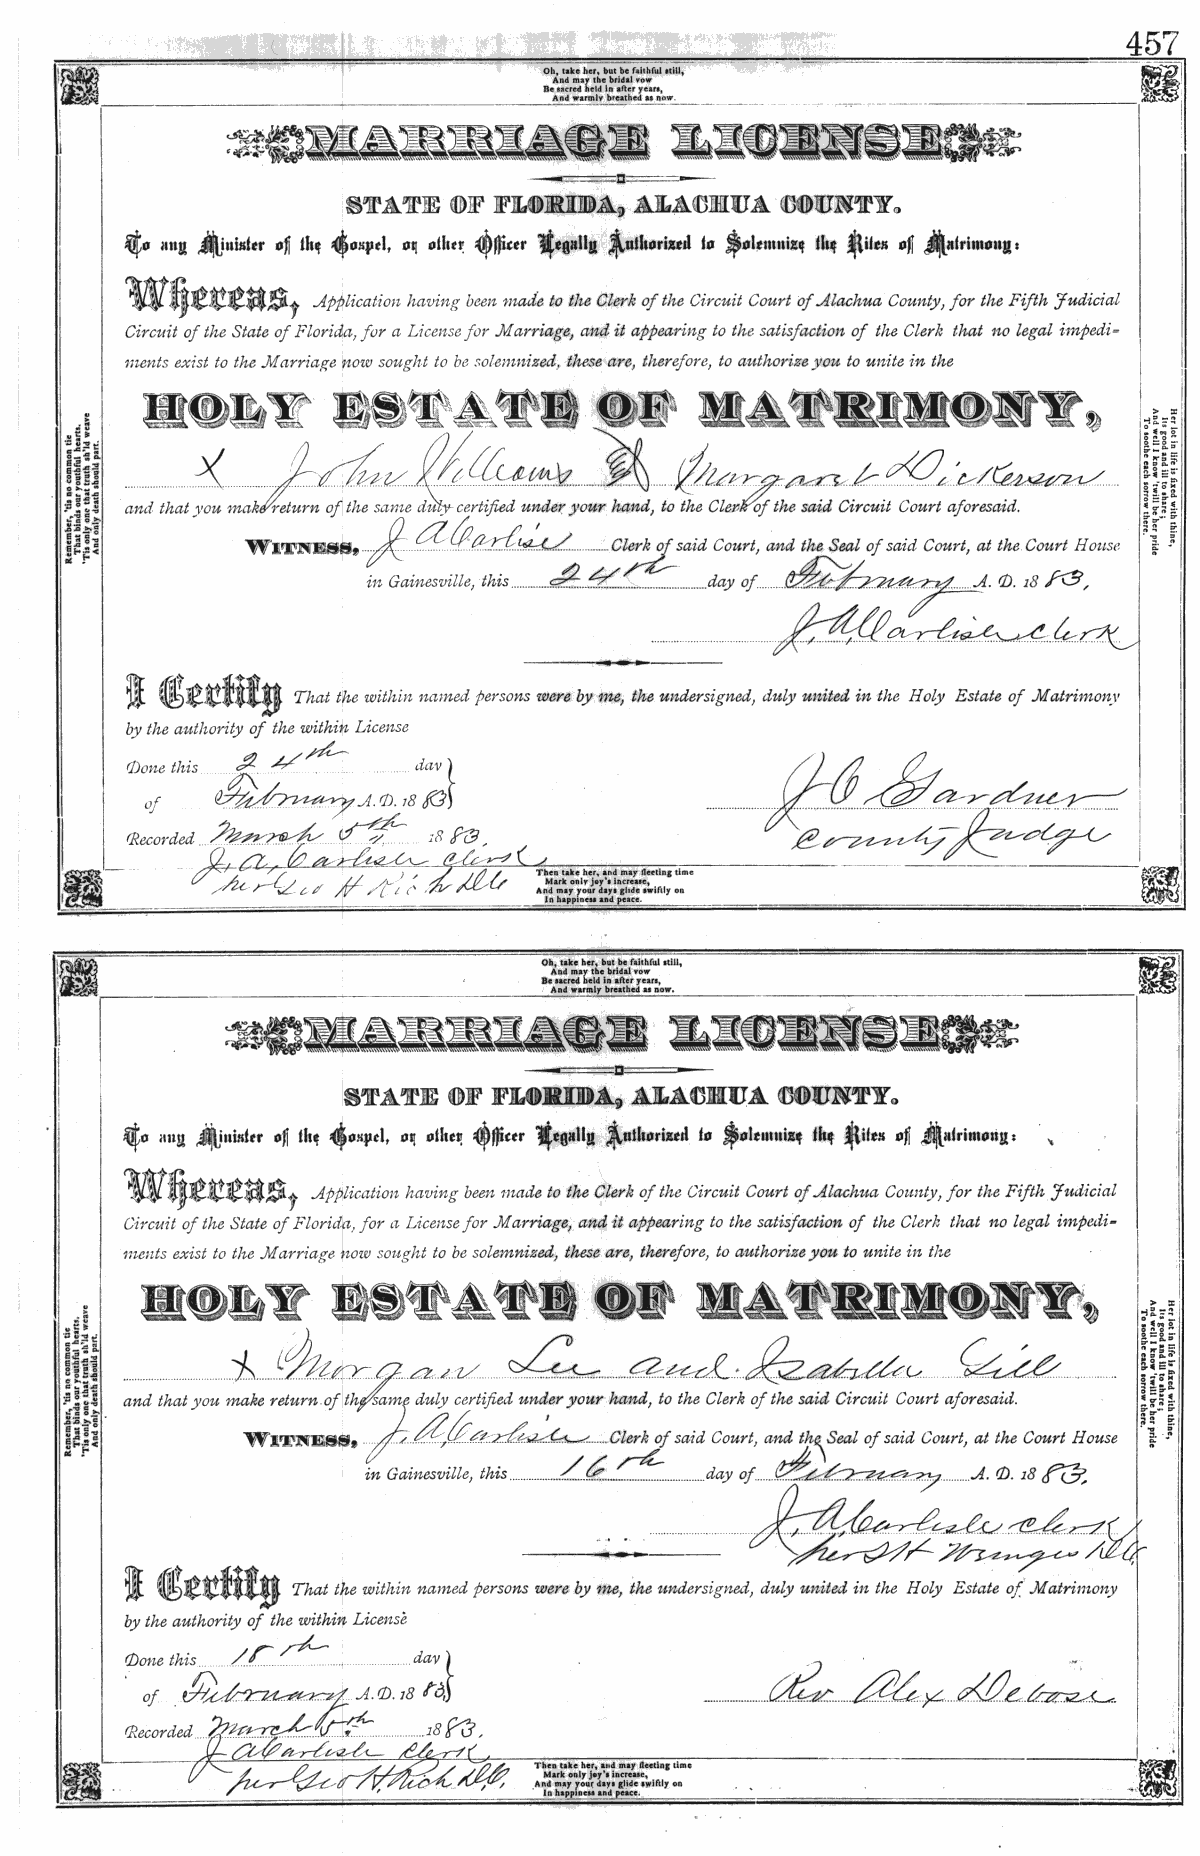 457
Oh, take her, but be faithful still,
And may the bridal vow
Be sacred held in after years,
And warmly breathed as now.
MARRIAGE LICENSE
STATE OF FLORIDA, ALACHUA COUNTY.
To any Minister of the Gospel, or other Officer Legally Authorized to Solemnize the Rites of Matrimony:
Whereas, Application having been made to the Clerk of the Circuit Court of Alachua County, for the Fifth Judicial
Circuit of the State of Florida, for a License for Marriage, and it appearing to the satisfaction of the Clerk that no legal impedi-
ments exist to the Marriage now sought to be solemnized, these are, therefore, to authorize you to unite in the
HOLY ESTATE OF MATRIMONY,
X John Williams & Margaret Dickerson
and that you make return of the same duly certified under your hand, to the Clerk of the said Circuit Court aforesaid.
WITNESS, J A Carlisle Clerk of said Court, and the Seal of said Court, at the Court House
in Gainesville, this 24th day of February A. D. 1883.
J. A. Carlisle Clerk
I Certify That the within named persons were by me, the undersigned, duly united in the Holy Estate of Matrimony
by the authority of the within License
Done this 24th day
of February A. D. 1883
J C Gardner
Recorded March 5th 1883.
County Judge
J. A. Carlisle Clerk
per Geo H Rich D.C.
Then take her, and may fleeting time
Mark only joy's increase,
And may your days glide swiftly on
In happiness and peace.
Remember, 'tis no common tie
That binds our youthful hearts,
'Tis only one that truth sh'ld weave
And only death should part.
Her lot in life is fixed with thine,
Its good and ill to share;
And well I know 'twill be her pride
To soothe each sorrow there.
Oh, take her, but be faithful still,
And may the bridal vow
Be sacred held in after years,
And warmly breathed as now.
MARRIAGE LICENSE
STATE OF FLORIDA, ALACHUA COUNTY.
To any Minister of the Gospel, or other Officer Legally Authorized to Solemnize the Rites of Matrimony:
Whereas, Application having been made to the Clerk of the Circuit Court of Alachua County, for the Fifth Judicial
Circuit of the State of Florida, for a License for Marriage, and it appearing to the satisfaction of the Clerk that no legal impedi-
ments exist to the Marriage now sought to be solemnized, these are, therefore, to authorize you to unite in the
HOLY ESTATE OF MATRIMONY,
X Morgan Lee and Isabella Gill
and that you make return of the same duly certified under your hand, to the Clerk of the said Circuit Court aforesaid.
WITNESS, J. A. Carlisle Clerk of said Court, and the Seal of said Court, at the Court House
in Gainesville, this 16th day of February A. D. 1883.
J. A. Carlisle Clerk
per H D.C.
I Certify That the within named persons were by me, the undersigned, duly united in the Holy Estate of Matrimony
by the authority of the within License
Done this 18th day
of February A. D. 1883
Rev Alex Debose
Recorded March 5th 1883.
J A Carlisle Clerk
per Geo H. Rich D.C.
Then take her, and may fleeting time
Mark only joy's increase,
And may your days glide swiftly on
In happiness and peace.
Remember, 'tis no common tie
That binds our youthful hearts,
'Tis only one that truth sh'ld weave
And only death should part.
Her lot in life is fixed with thine,
Its good and ill to share;
And well I know 'twill be her pride
To soothe each sorrow there.